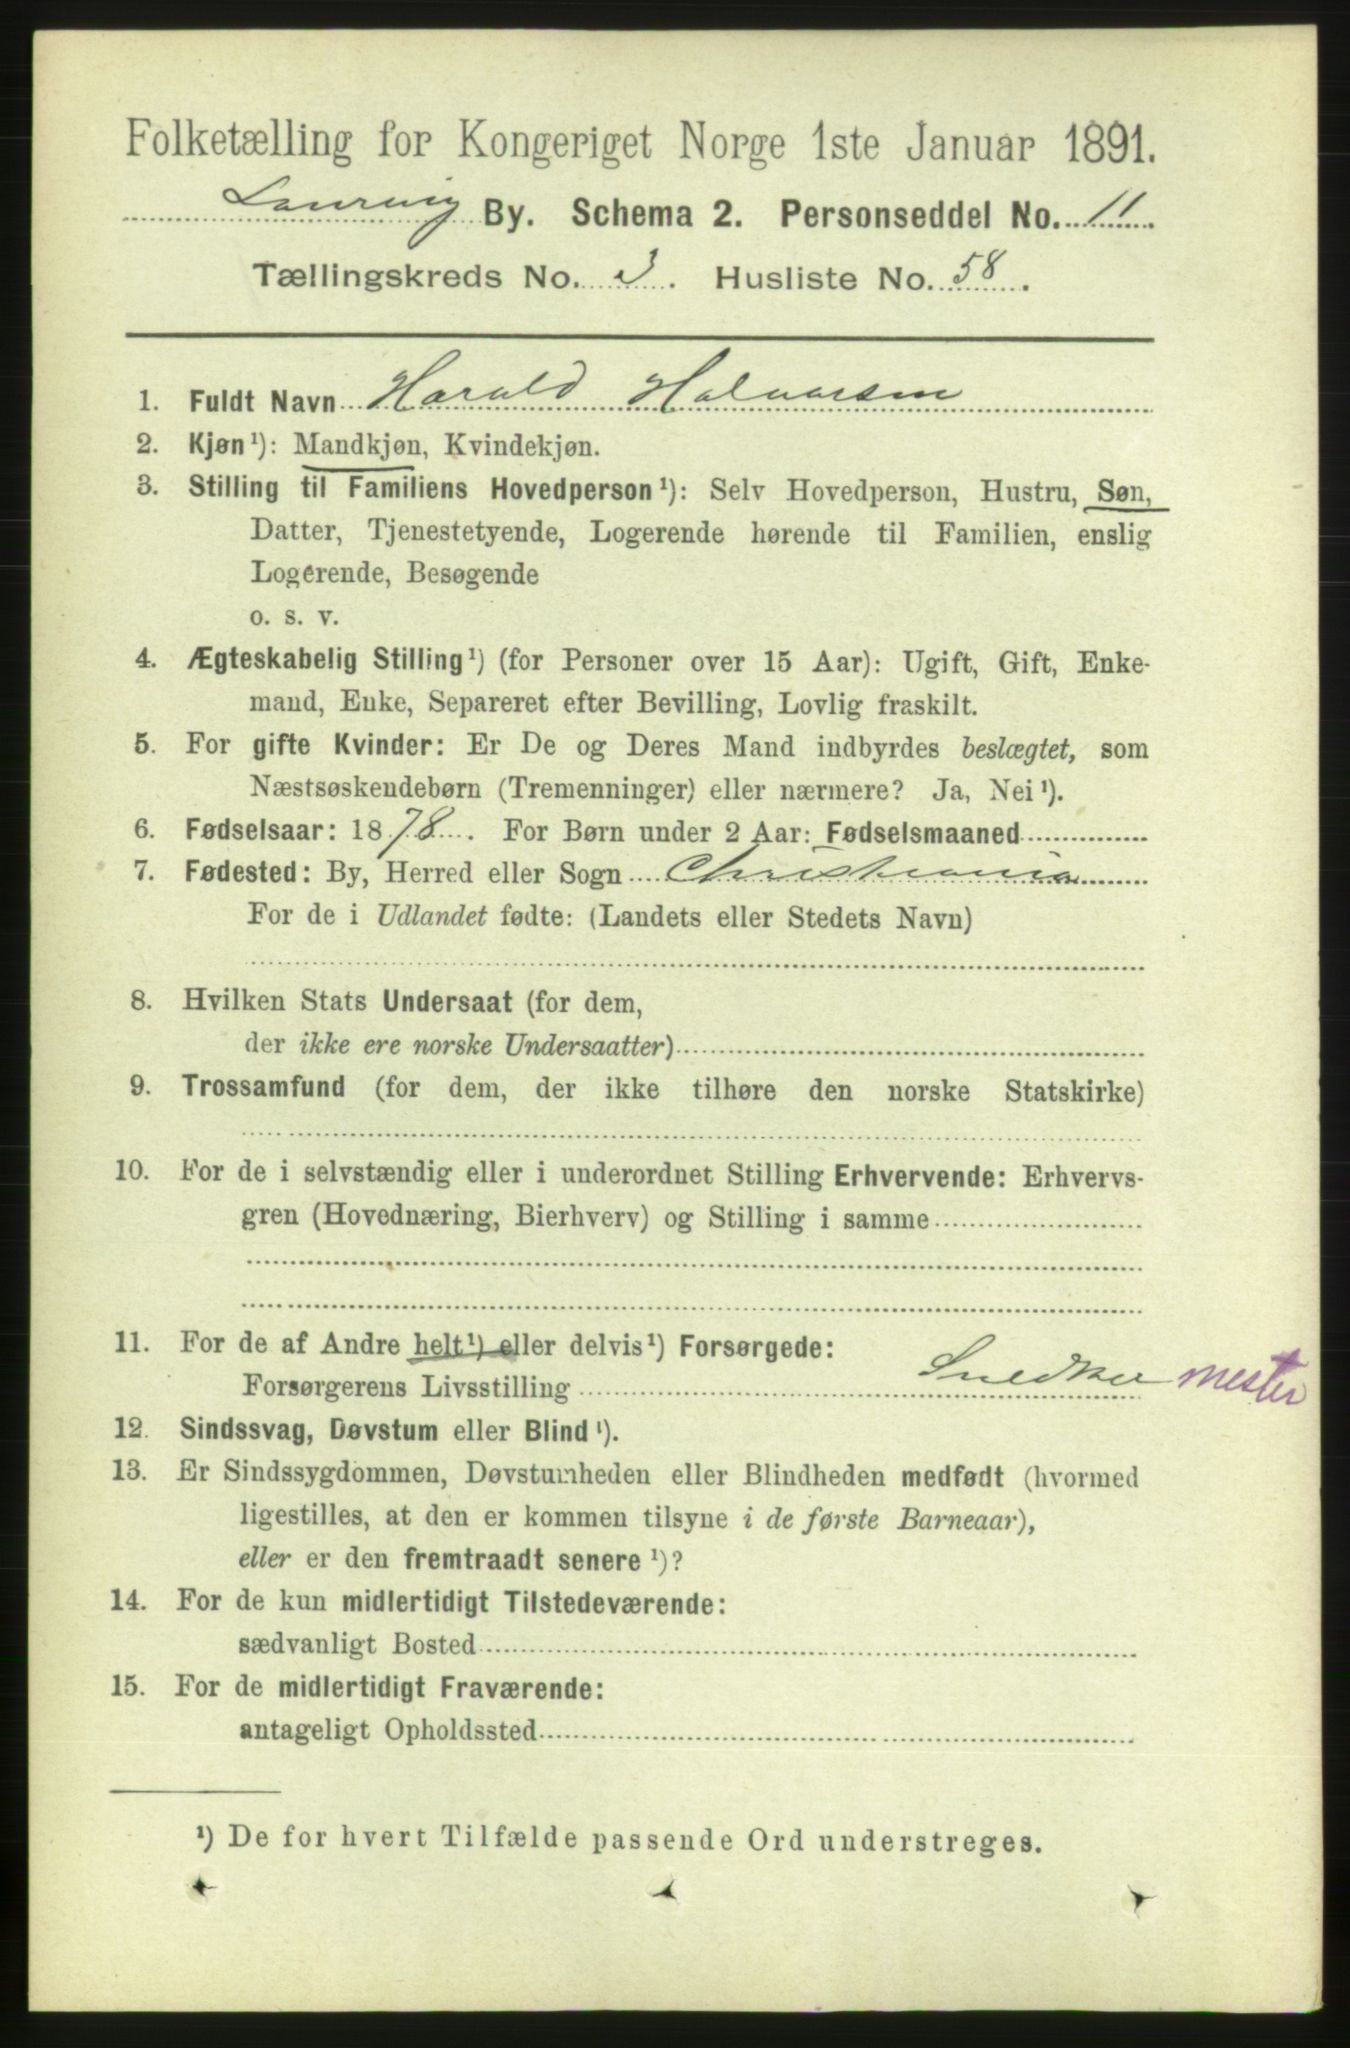 Folketælling for Kongeriget Norge 1ste Januar 1891.
Laurvig By. Schema 2. Personseddel No. 11
Tællingskreds No. 3. Husliste No. 58.
1. Fuldt Navn Harald Halvorsen
2. Kjøn¹): Mandkjøn, Kvindekjøn.
3. Stilling til Familiens Hovedperson¹): Selv Hovedperson, Hustru, Søn,
Datter, Tjenestetyende, Logerende hørende til Familien, enslig
Logerende, Besøgende
o. s. v.
4. Ægteskabelig Stilling¹) (for Personer over 15 Aar): Ugift, Gift, Enke-
mand, Enke, Separeret efter Bevilling, Lovlig fraskilt.
5. For gifte Kvinder: Er De og Deres Mand indbyrdes beslægtet, som
Næstsøskendebørn (Tremenninger) eller nærmere? Ja, Nei¹).
6. Fødselsaar: 1878. For Børn under 2 Aar: Fødselsmaaned
7. Fødested: By, Herred eller Sogn Christiania
For de i Udlandet fødte: (Landets eller Stedets Navn)
8. Hvilken Stats Undersaat (for dem,
der ikke ere norske Undersaatter)
9. Trossamfund (for dem, der ikke tilhøre den norske Statskirke)
10. For de i selvstændig eller i underordnet Stilling Erhvervende: Erhvervs-
gren (Hovednæring, Bierhverv) og Stilling i samme
11. For de af Andre helt¹) eller delvis¹) Forsørgede:
Forsørgerens Livsstilling Snedker mester
12. Sindssvag, Døvstum eller Blind¹).
13. Er Sindssygdommen, Døvstumheden eller Blindheden medfødt (hvormed
ligestilles, at den er kommen tilsyne i de første Barneaar),
eller er den fremtraadt senere¹)?
14. For de kun midlertidigt Tilstedeværende:
sædvanligt Bosted
15. For de midlertidigt Fraværende:
antageligt Opholdssted
¹) De for hvert Tilfælde passende Ord understreges.